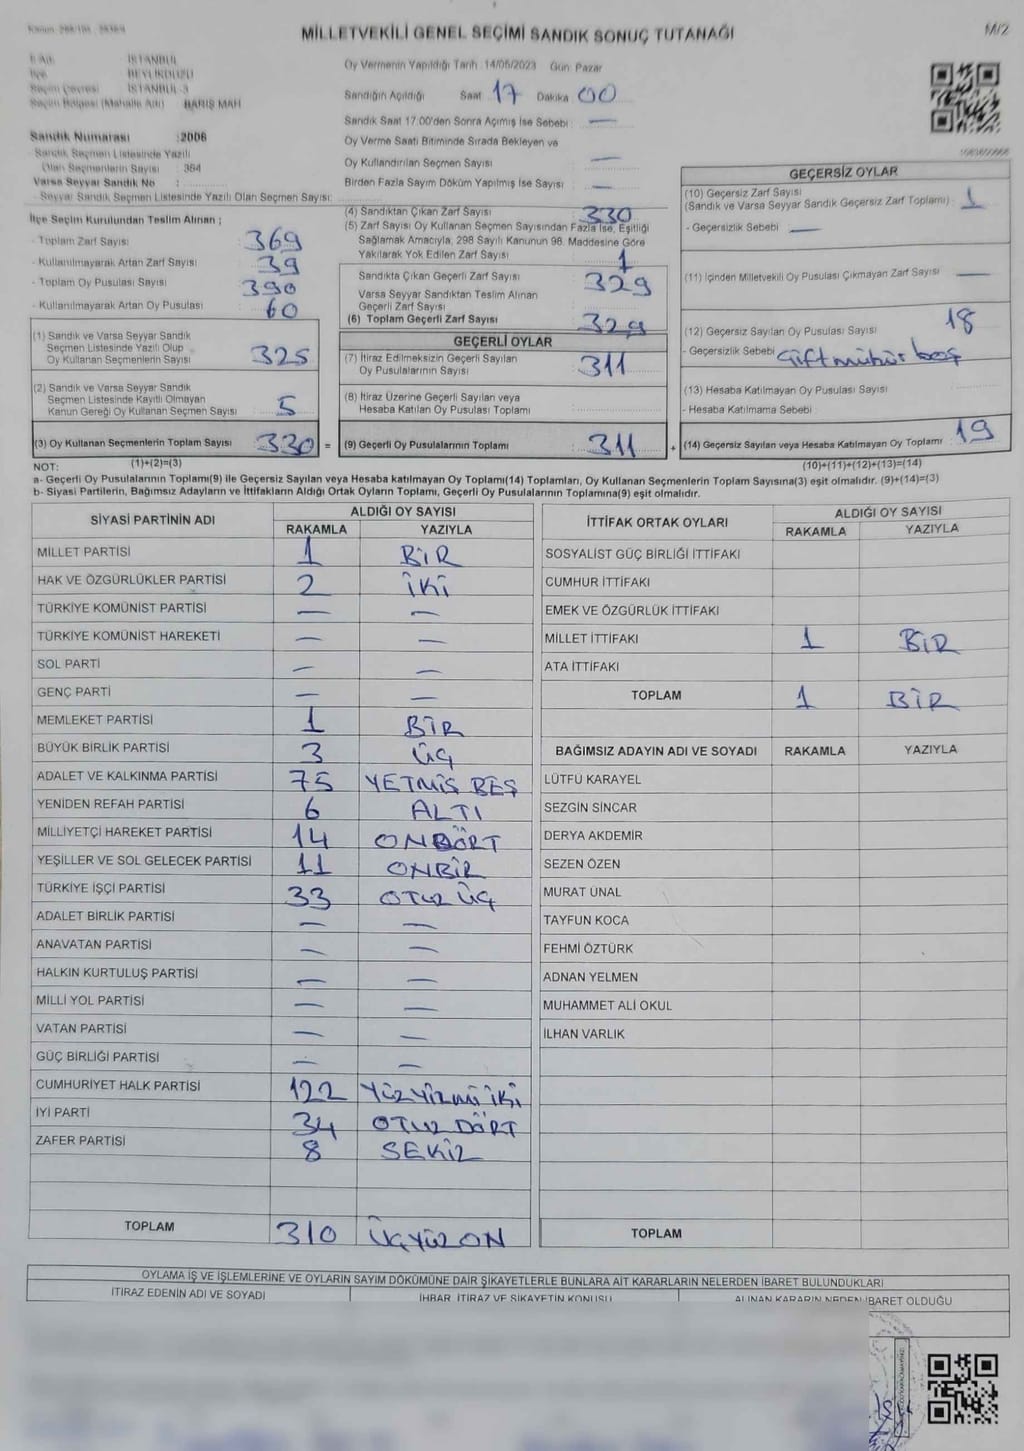 MİLLETVEKİLİ GENEL SEÇİMİ SANDIK SONUÇ TUTANAĞI
M/2
İli Adı: İSTANBUL
İlçe BEYLİKDÜZÜ
Seçim Çevresi İSTANBUL-3
Seçim Bölgesi (Mahalle Adı) BARIŞ MAH
Sandık Numarası :2006
- Sandık Seçmen Listesinde Yazılı
Olan Seçmenlerin Sayısı : 364
Varsa Seyyar Sandık No :
- Seyyar Sandık Seçmen Listesinde Yazılı Olan Seçmen Sayısı:
Oy Vermenin Yapıldığı Tarih: 14/05/2023 Gün: Pazar
Sandığın Açıldığı Saat 17 Dakika 00
Sandık Saat 17:00'den Sonra Açımış İse Sebebi : —
Oy Verme Saati Bitiminde Sırada Bekleyen ve
Oy Kullandırılan Seçmen Sayısı —
Birden Fazla Sayım Döküm Yapılmış İse Sayısı : —
İlçe Seçim Kurulundan Teslim Alınan ;
- Toplam Zarf Sayısı 369
- Kullanılmayarak Artan Zarf Sayısı 39
- Toplam Oy Pusulası Sayısı 390
- Kullanılmayarak Artan Oy Pusulası 60
(1) Sandık ve Varsa Seyyar Sandık
Seçmen Listesinde Yazılı Olup
Oy Kullanan Seçmenlerin Sayısı 325
(2) Sandık ve Varsa Seyyar Sandık
Seçmen Listesinde Kayıtlı Olmayan
Kanun Gereği Oy Kullanan Seçmen Sayısı 5
(3) Oy Kullanan Seçmenlerin Toplam Sayısı 330 =
(4) Sandıktan Çıkan Zarf Sayısı 330
(5) Zarf Sayısı Oy Kullanan Seçmen Sayısından Fazla İse, Eşitliği
Sağlamak Amacıyla, 298 Sayılı Kanunun 98. Maddesine Göre
Yakılarak Yok Edilen Zarf Sayısı 1
Sandıkta Çıkan Geçerli Zarf Sayısı 329
Varsa Seyyar Sandıktan Teslim Alınan
Geçerli Zarf Sayısı
(6) Toplam Geçerli Zarf Sayısı 329
GEÇERLİ OYLAR
(7) İtiraz Edilmeksizin Geçerli Sayılan
Oy Pusulalarının Sayısı 311
(8) İtiraz Üzerine Geçerli Sayılan veya
Hesaba Katılan Oy Pusulası Toplamı
(9) Geçerli Oy Pusulalarının Toplamı 311 +
GEÇERSİZ OYLAR
(10) Geçersiz Zarf Sayısı
(Sandık ve Varsa Seyyar Sandık Geçersiz Zarf Toplamı) 1
- Geçersizlik Sebebi —
(11) İçinden Milletvekili Oy Pusulası Çıkmayan Zarf Sayısı —
(12) Geçersiz Sayılan Oy Pusulası Sayısı 18
- Geçersizlik Sebebi Çift mühür boş
(13) Hesaba Katılmayan Oy Pusulası Sayısı
- Hesaba Katılmama Sebebi
(14) Geçersiz Sayılan veya Hesaba Katılmayan Oy Toplamı 19
NOT: (1)+(2)=(3) (10)+(11)+(12)+(13)=(14)
a- Geçerli Oy Pusulalarının Toplamı(9) ile Geçersiz Sayılan veya Hesaba katılmayan Oy Toplamı(14) Toplamları, Oy Kullanan Seçmenlerin Toplam Sayısına(3) eşit olmalıdır. (9)+(14)=(3)
b- Siyasi Partilerin, Bağımsız Adayların ve İttifakların Aldığı Ortak Oyların Toplamı, Geçerli Oy Pusulalarının Toplamına(9) eşit olmalıdır.
SİYASİ PARTİNİN ADI ALDIĞI OY SAYISI
RAKAMLA YAZIYLA
MİLLET PARTİSİ 1 BİR
HAK VE ÖZGÜRLÜKLER PARTİSİ 2 İKİ
TÜRKİYE KOMÜNİST PARTİSİ — —
TÜRKİYE KOMÜNİST HAREKETİ — —
SOL PARTİ — —
GENÇ PARTİ — —
MEMLEKET PARTİSİ 1 BİR
BÜYÜK BİRLİK PARTİSİ 3 ÜÇ
ADALET VE KALKINMA PARTİSİ 75 YETMİŞ BEŞ
YENİDEN REFAH PARTİSİ 6 ALTI
MİLLİYETÇİ HAREKET PARTİSİ 14 ONDÖRT
YEŞİLLER VE SOL GELECEK PARTİSİ 11 ONBİR
TÜRKİYE İŞÇİ PARTİSİ 33 OTUZ ÜÇ
ADALET BİRLİK PARTİSİ — —
ANAVATAN PARTİSİ — —
HALKIN KURTULUŞ PARTİSİ — —
MİLLİ YOL PARTİSİ — —
VATAN PARTİSİ — —
GÜÇ BİRLİĞİ PARTİSİ — —
CUMHURİYET HALK PARTİSİ 122 YÜZ YİRMİ İKİ
İYİ PARTİ 34 OTUZ DÖRT
ZAFER PARTİSİ 8 SEKİZ
TOPLAM 310 ÜÇYÜZ ON
İTTİFAK ORTAK OYLARI ALDIĞI OY SAYISI
RAKAMLA YAZIYLA
SOSYALİST GÜÇ BİRLİĞİ İTTİFAKI
CUMHUR İTTİFAKI
EMEK VE ÖZGÜRLÜK İTTİFAKI
MİLLET İTTİFAKI 1 BİR
ATA İTTİFAKI
TOPLAM 1 BİR
BAĞIMSIZ ADAYIN ADI VE SOYADI RAKAMLA YAZIYLA
LÜTFÜ KARAYEL
SEZGİN SİNCAR
DERYA AKDEMİR
SEZEN ÖZEN
MURAT ÜNAL
TAYFUN KOCA
FEHMİ ÖZTÜRK
ADNAN YELMEN
MUHAMMET ALİ OKUL
İLHAN VARLIK
TOPLAM
OYLAMA İŞ VE İŞLEMLERİNE VE OYLARIN SAYIM DÖKÜMÜNE DAİR ŞİKAYETLERLE BUNLARA AİT KARARLARIN NELERDEN İBARET BULUNDUKLARI
İTİRAZ EDENİN ADI VE SOYADI İHBAR, İTİRAZ VE ŞİKAYETİN KONUSU ALINAN KARARIN NEDEN İBARET OLDUĞU